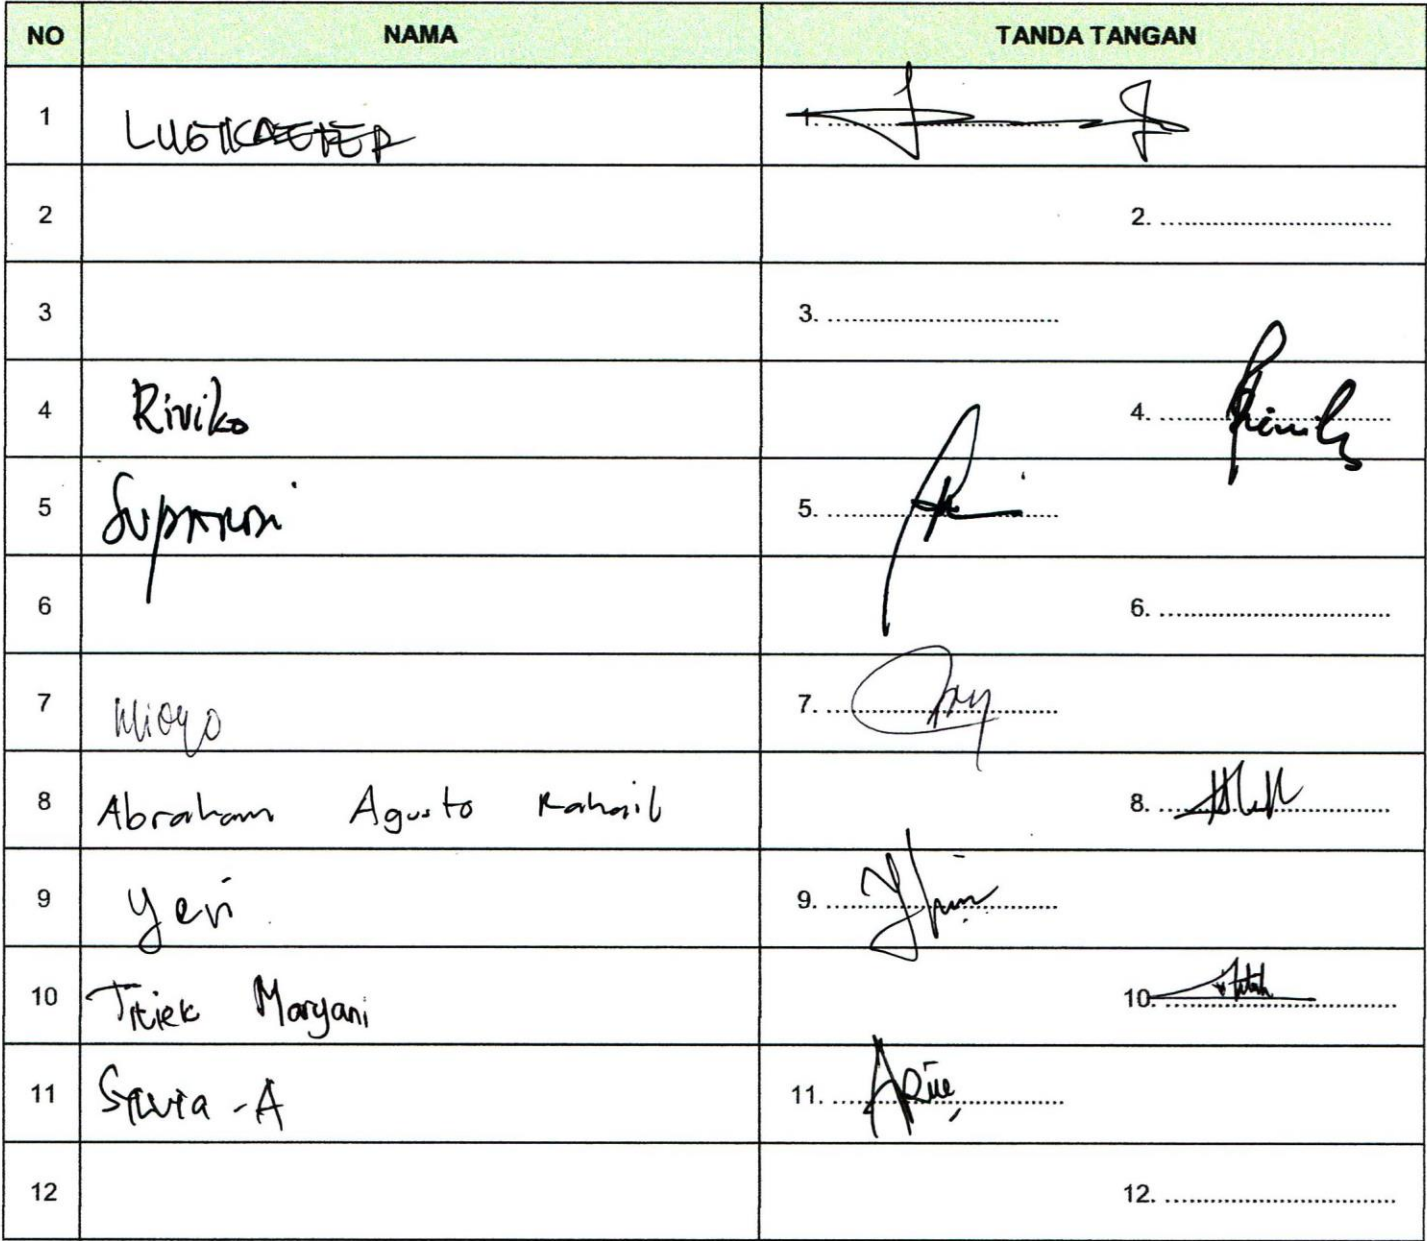 NO NAMA TANDA TANGAN
1 1.
2 2. ........................................
3 3. ........................................
4 Riviko 4. ........................................
5 5. ........................................
6 6. ........................................
7 7. ........................................
8 Abraham Agusto Rahail 8. ........................................
9 Yeri 9. ........................................
10 Titiek Maryani 10. ........................................
11 Silvia -A 11. ........................................
12 12. ........................................